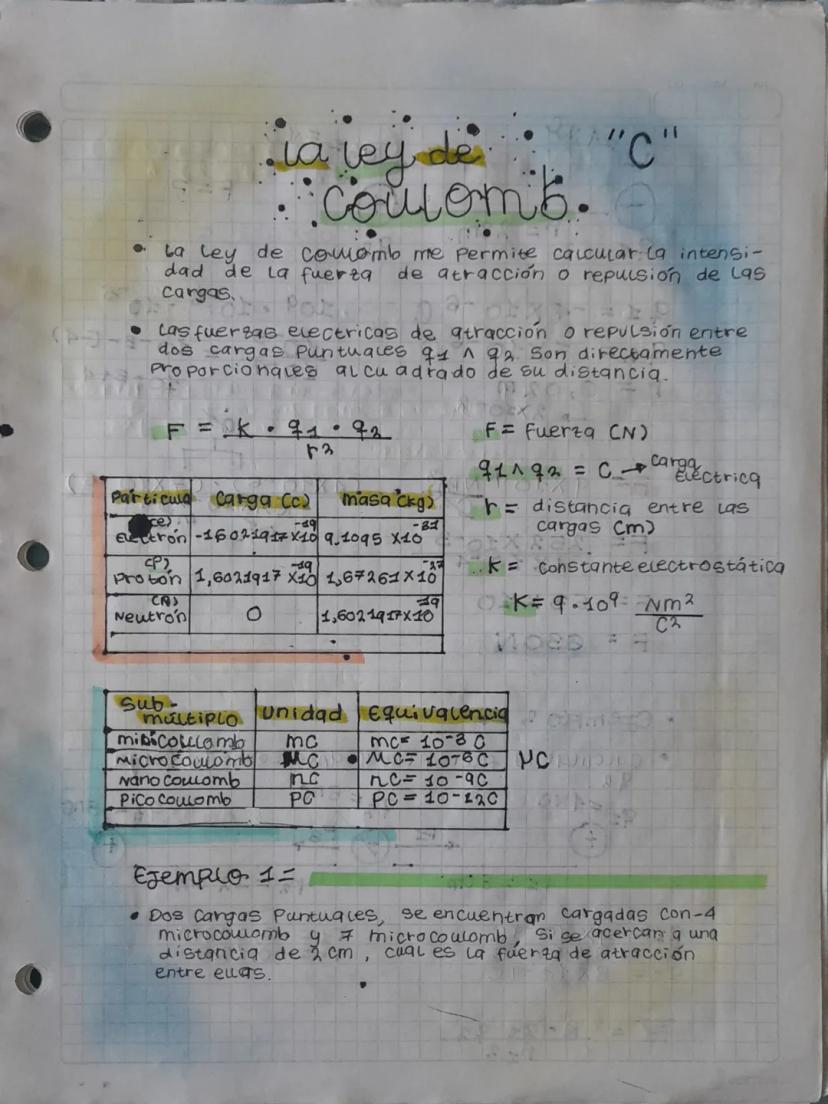 La ley de "C"
Coulomb.
• La Ley de Coulomb me permite calcular la intensi-
dad de la fuerza de atracción o repulsión de las
cargas.
• Las fuerzas electricas de atracción o repulsión entre
dos cargas Puntuales q1 ∧ q2 son directamente
proporcionales al cuadrado de su distancia.
F = K · q1 · q2
r2
F = Fuerza (N)
q1 ∧ q2 = C → carga electrica
r = distancia entre las
cargas (m)
K = constante electrostática
K = 9 · 10⁹ Nm²
C²
Particula Carga (c) masa (kg)
(e)
Electrón -16021917 x10⁻¹⁹ 9.1095 x10⁻³¹
(P)
Protón 1,6021917 x10⁻¹⁹ 1,67261 x10⁻²⁷
(n)
Neutrón 0
Sub-
múltiplo unidad Equivalencia
milicoulomb mC mC = 10-3 C
microcoulomb MC • MC = 10-6 C μC
nanocoulomb nC nC = 10-9C
picocoulomb PC PC = 10-12C
Ejemplo 1 =
• Dos Cargas Puntuales, se encuentran cargadas con -4
microcoulomb y 7 microcoulomb, si se acercan a una
distancia de 2 cm, cual es la fuerza de atracción
entre ellas.